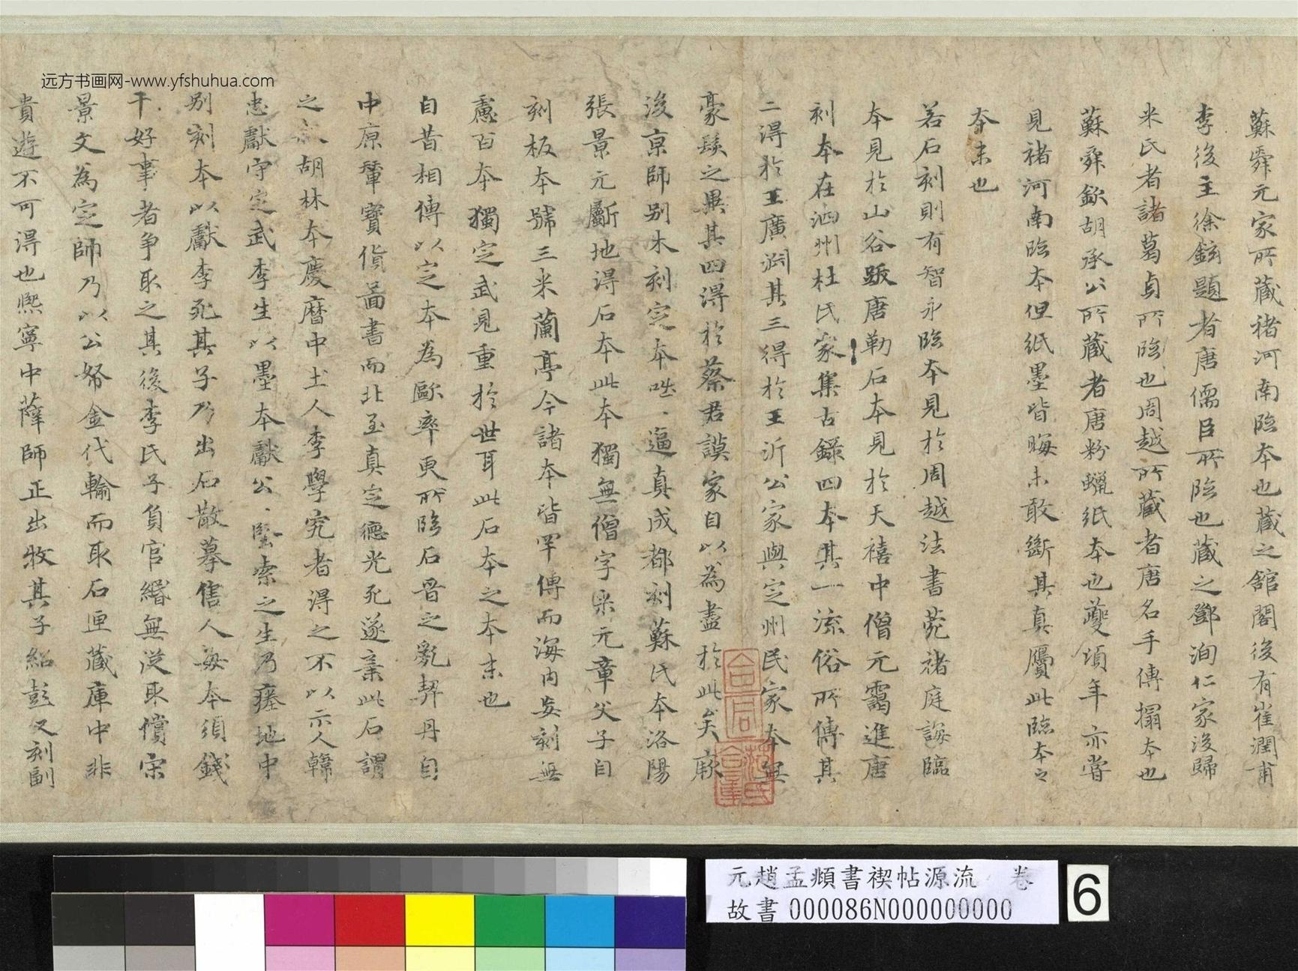 蘇舜元家所藏褚河南臨本也藏之館閣後有崔潤甫
李後主徐鉉題者唐儒臣所臨也藏之鄧洵仁家後歸
米氏者諸葛貞所臨也周越所藏者唐名手傳搨本也
蘇舜欽胡承公所藏者唐粉蠟紙本也夔頃年亦嘗
見褚河南臨本但紙墨皆晦未敢斷其真贗此臨本之
本末也
若石刻則有智永臨本見於周越法書苑褚庭誨臨
本見於山谷跋唐勒石本見於天禧中僧元靄進唐
刻本在泗州杜氏家集古錄四本其一流俗所傳其
二得於王廣淵其三得於王沂公家與定州民家本無
豪髮之異其四得於蔡君謨家自以為盡於此矣厥
後京師別木刻定本咄、逼真成都刻蘇氏本洛陽
張景元斸地得石本此本獨無僧字米元章父子自
刻板本號三米蘭亭今諸本皆罕傳而海內妄刻無
慮百本獨定武見重於世耳此石本之本末也
自昔相傳以定本為歐率更所臨石晉之亂契丹自
中原輦寶貨圖書而北至真定德光死遂棄此石謂
之 胡林本慶曆中土人李學究者得之不以示人韓
忠獻守定武李生以墨本獻公、堅索之生乃瘞地中
別刻本以獻李死其子乃出石散摹售人每本須錢
千好事者爭取之其後李氏子負官緡無從取償宋
景文為定師乃以公帑金代輸而取石匣藏庫中非
貴遊不可得也熙寧中薛師正出牧其子紹彭又刻副
合同
范氏
远方书画网-www.yfshuhua.com
元趙孟頫書禊帖源流 卷
故書 000086N000000000
6